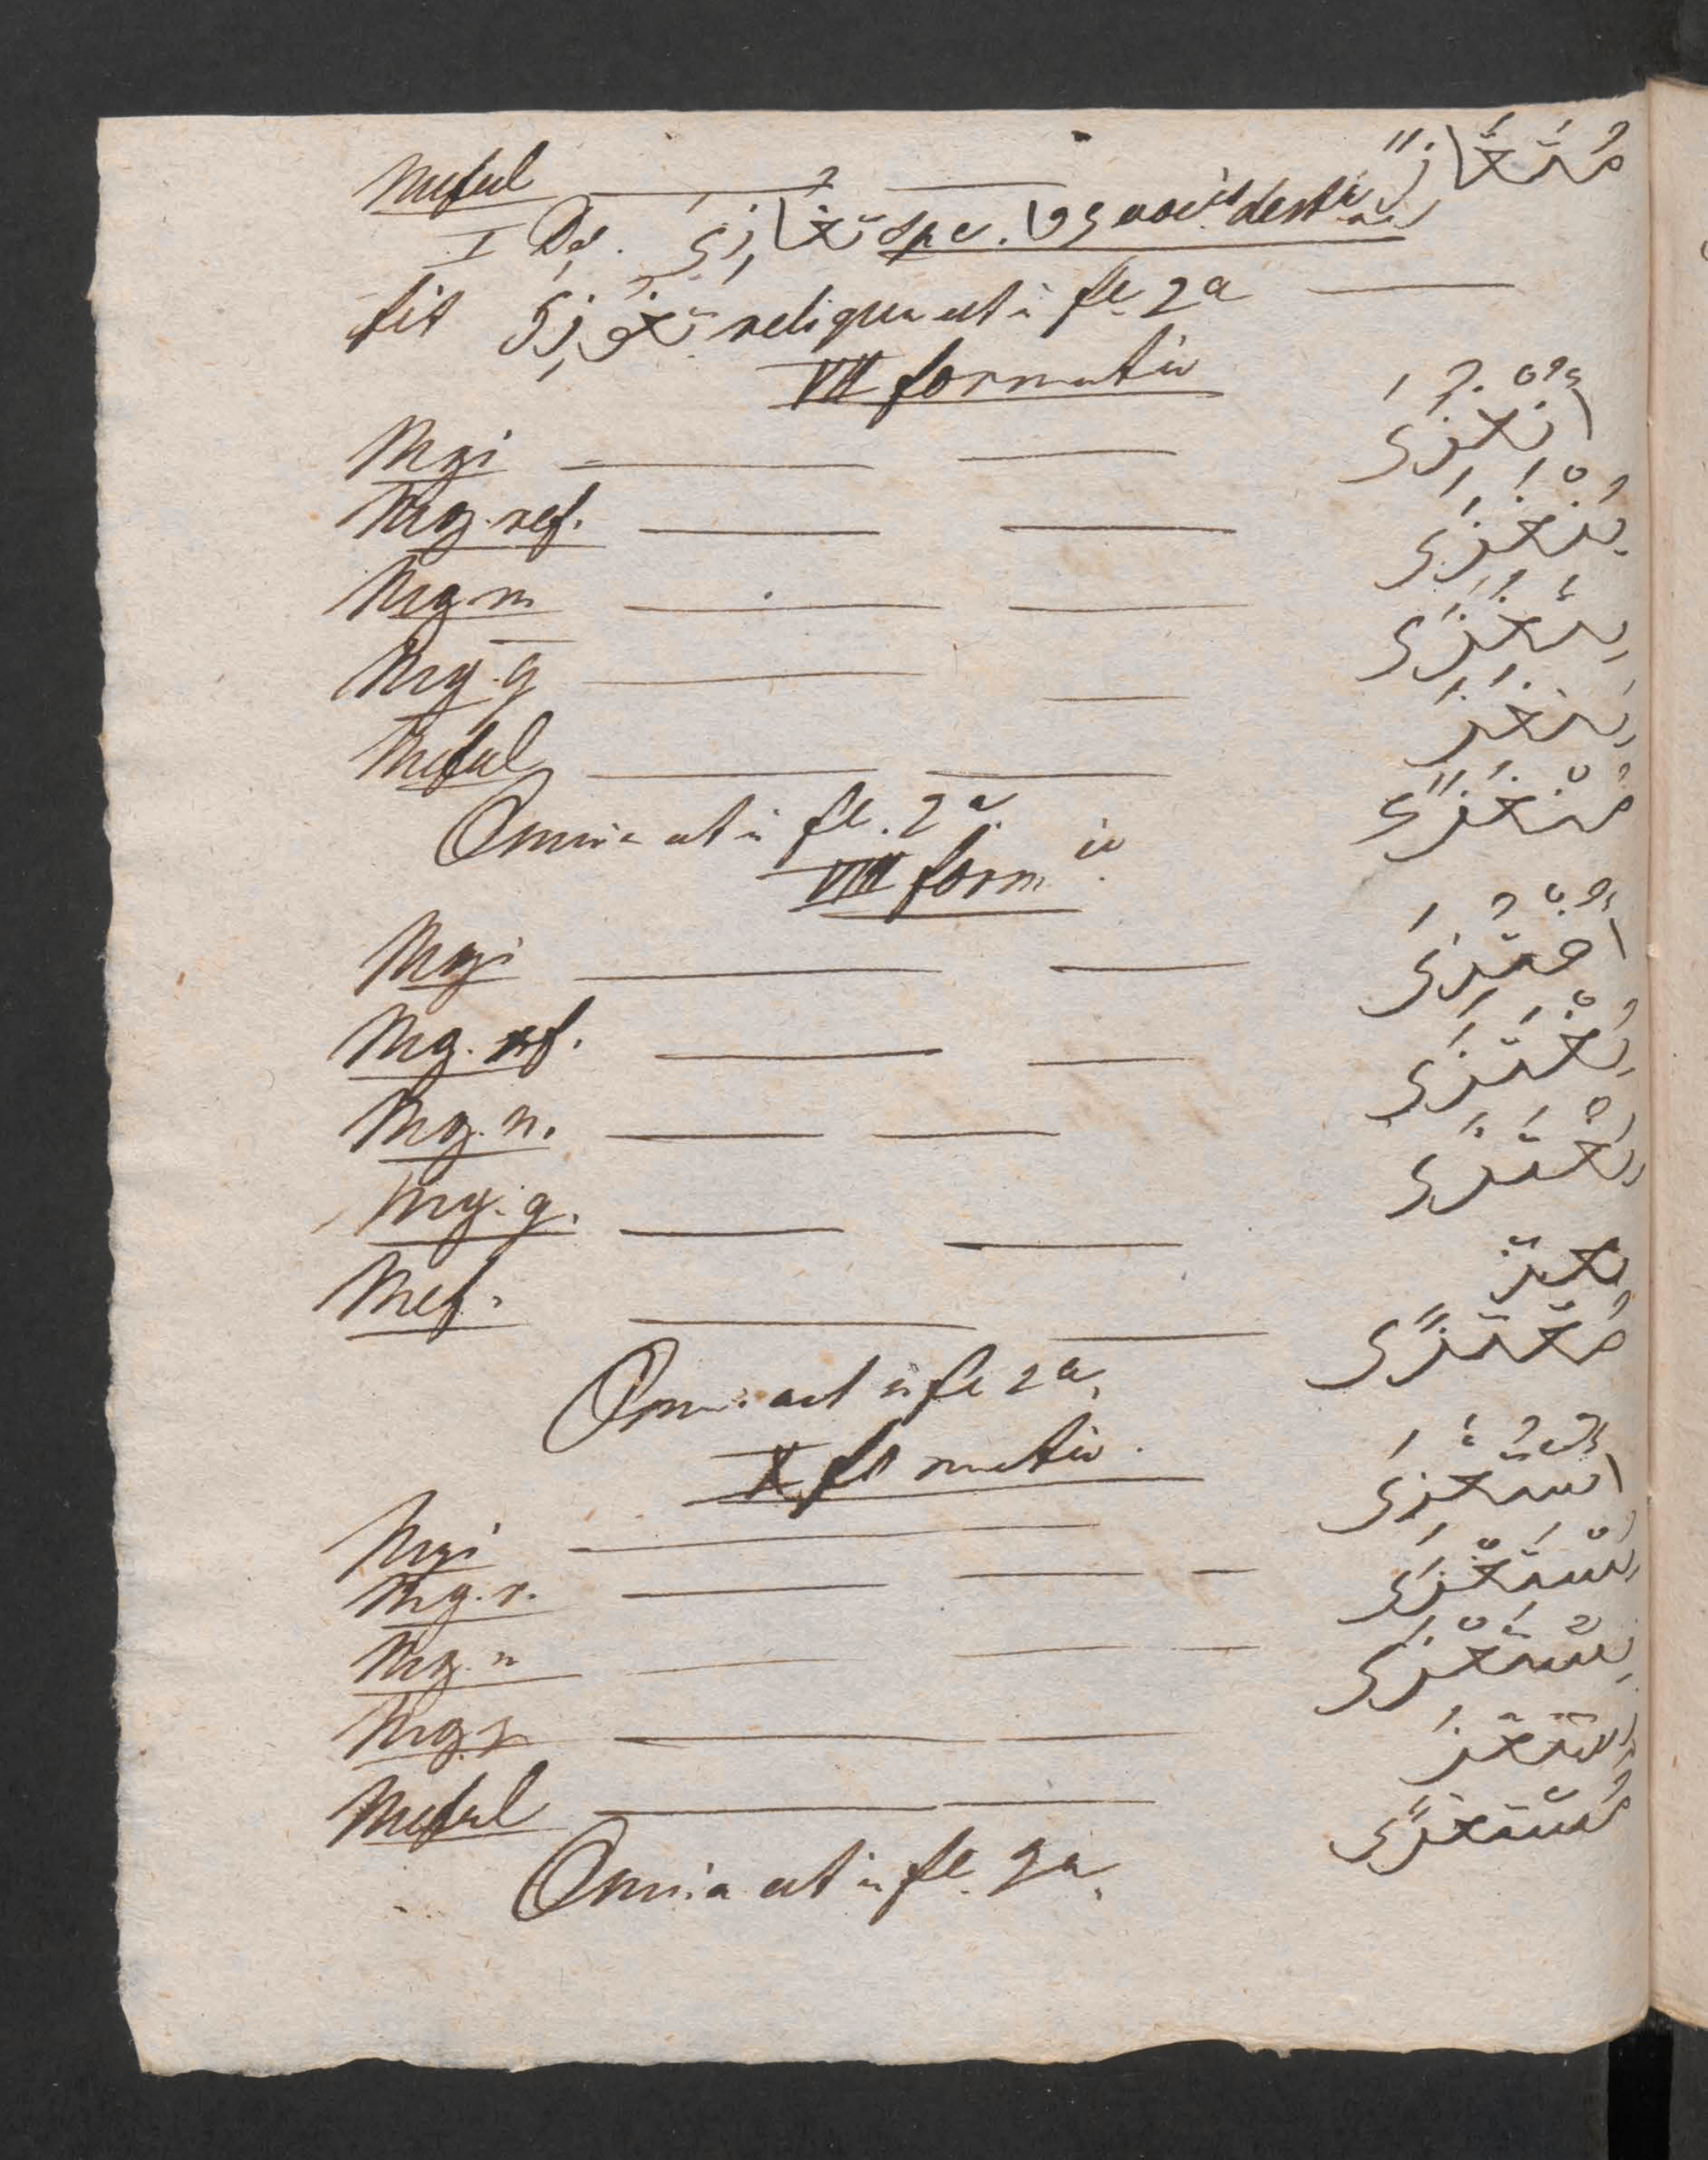 Meful — 2 — مُتَغَازًى
I Def. تغازى spe.
fit تغوزى reliqua ut i fle 2a —
VII formatio
Mzi — — اُنغُزِىَ
Mg. ref. — — يُنْغَزَى
Mg. n — — يُنغَزَى
Mg. g — — يُنغَزَ
Meful — — مُنْغَزًى
Omnia ut i fle. 2a.
VIII form io.
Mzi — — اُغتُزِىَ
Mg. ref. — — يُغْتَزَى
Mg. n. — — يُغْتَزَى
Mg. g. — — يغتز
Mef. — — مُغْتَزًى
Omnia ut i fle 2a.
X formatio.
Mzi — — اُستُغْزِىَ
Mg. r. — — يُسْتَغْزَى
Mg. n — — يُسْتَغْزَى
Mg. g — — يستغزَ
Meful — — مُستغزًى
Omnia ut i fle. 2a.